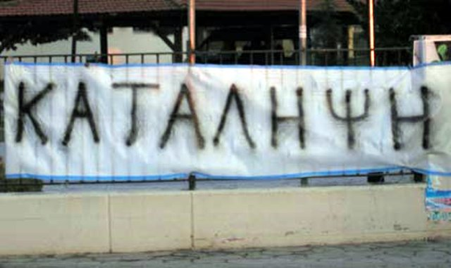 ΚΑΤΑΛΗΨΗ